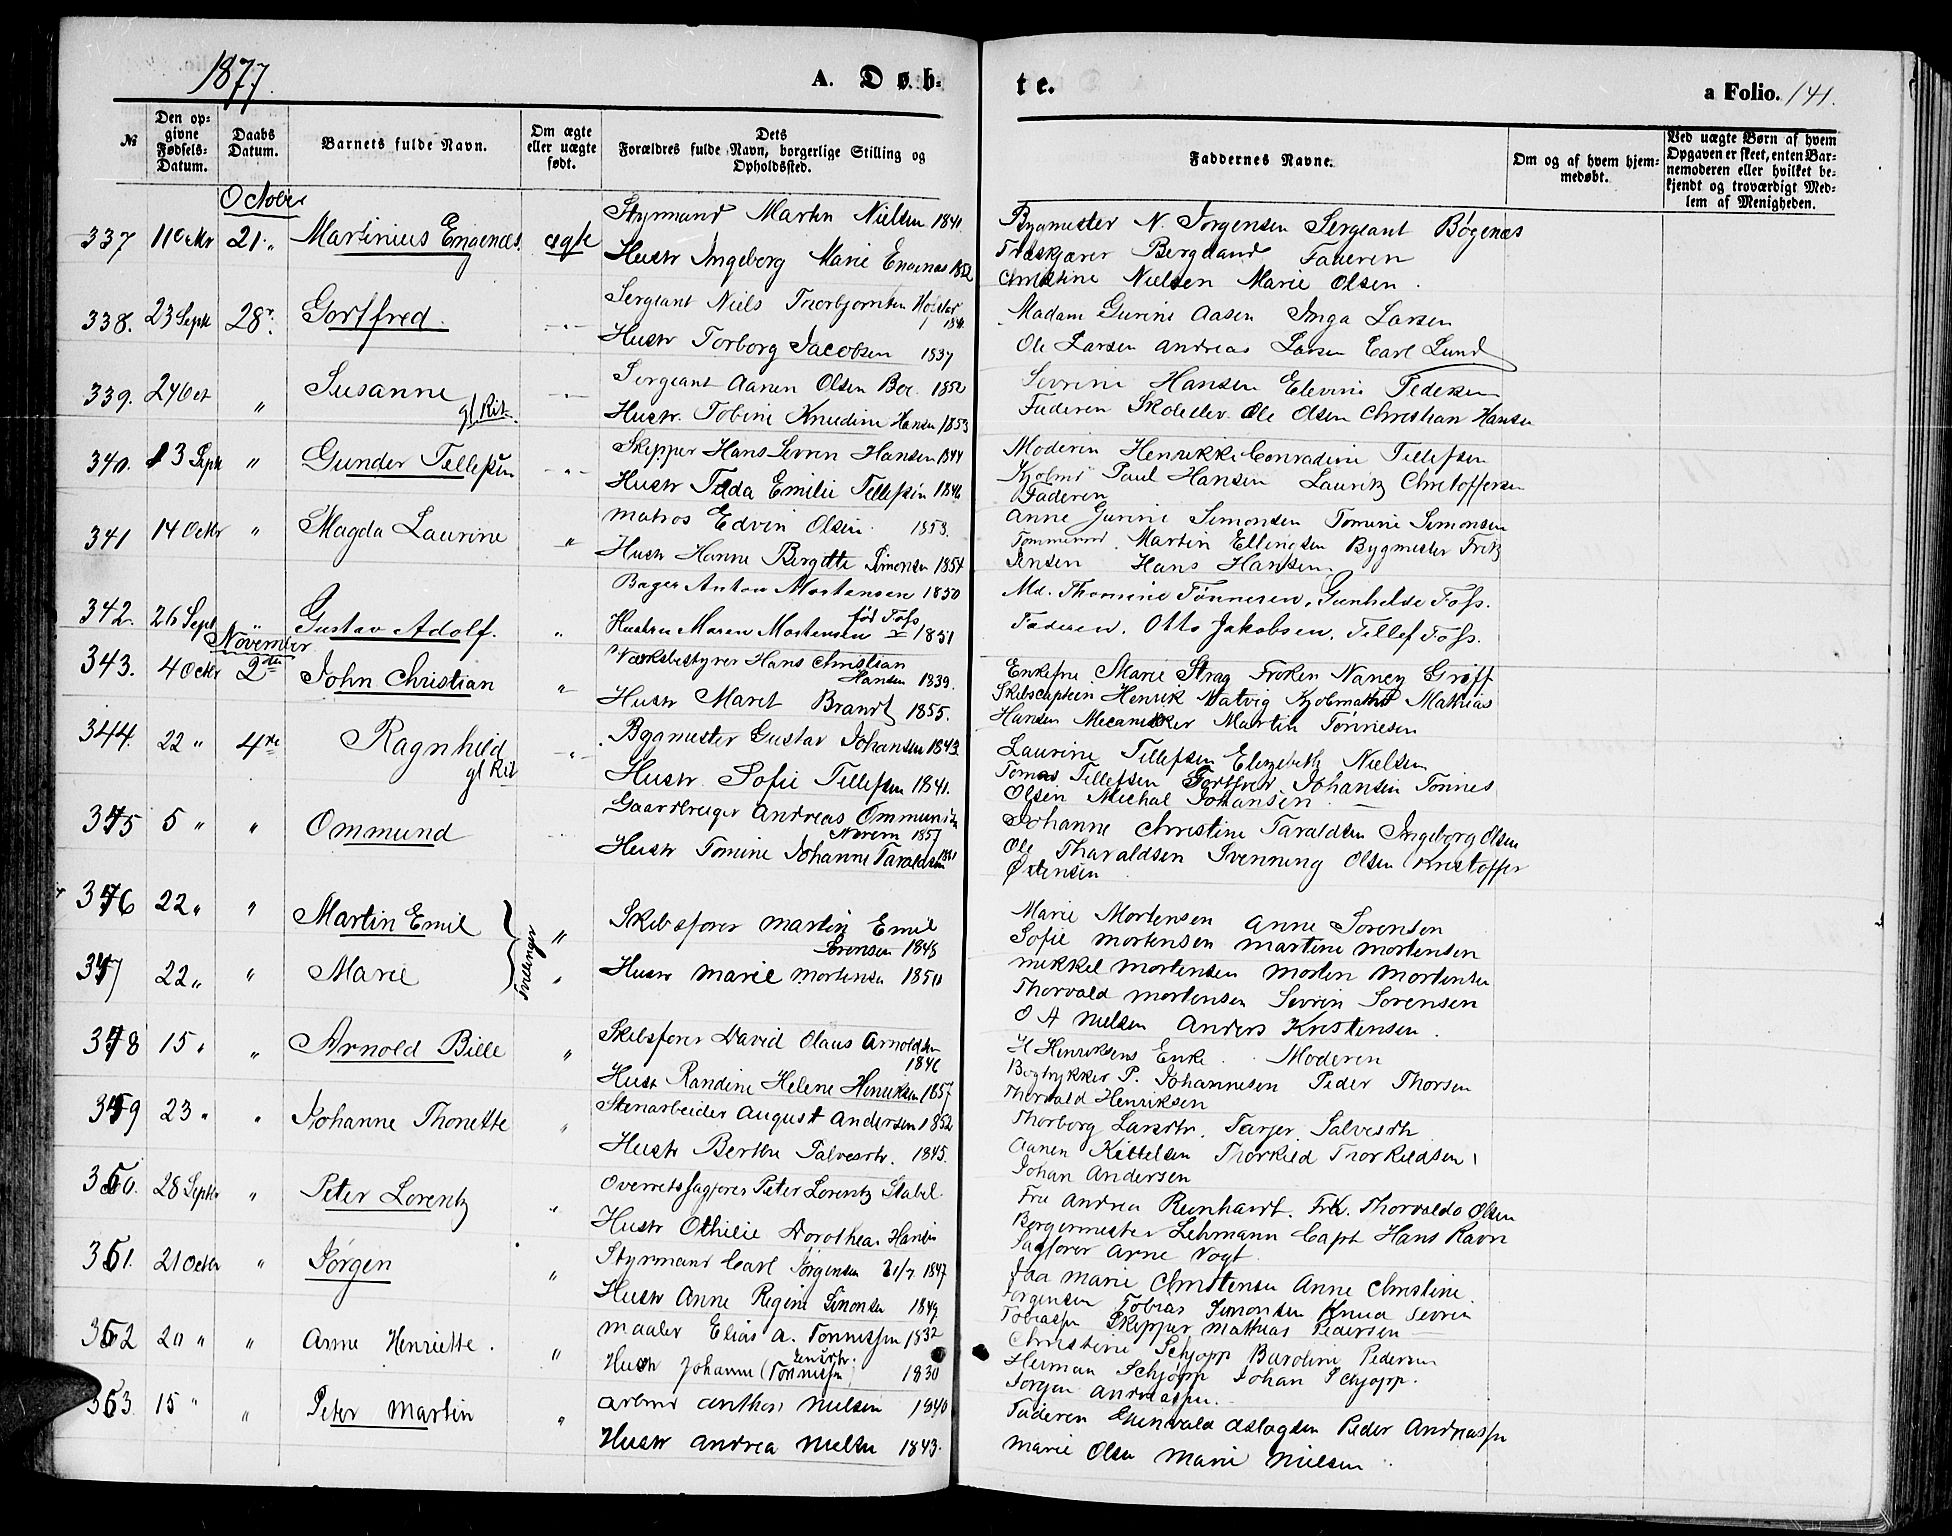 1877.
A. Døb-
te.
a Folio. 141.
№
Den op-
givne
Fødsels-
Datum.
Daabs
Datum.
Barnets fulde Navn.
Om ægte
eller uægte
født.
Dets
Forældres fulde Navn, borgerlige Stilling og
Opholdssted.
Faddernes Navne.
Om og af hvem hjem-
medøbt.
Ved uægte Børn af hvem
Opgaven er skeet, enten Bar-
nemoderen eller hvilket be-
kjendt og troværdigt Med-
lem af Menigheden.
October
337 11 Oktr 21. Martinius Engenæs ægte
Styrmand Martin Nielsen 1841.
Hustr Ingeborg Marie Engenæs 1852
Bygmester N. Jørgensen Sergeant Bøgenæs
Træskjærer Bergland Faderen
Christine Nielsen Marie Olsen.
338. 23 Septr 28. Gortfred.
Sergeant Niels Thorbjørnsen
Hustr Torborg Jacobsen 1837
Madam Gurine Aasen Inga Larsen
Ole Larsen Andreas Larsen Carl Lund
339. 24 Oct " Susanne
gl Rit.
Sergeant Aanen Olsen Boe. 1852
Hustr. Tobine Knudine Hansen 1853
Sevrine Hansen Elevine Pedersen
Faderen Skoleelev Ole Olsen Christian Hansen
340. 13 Septr " Gunder Tellefsen
Skipper Hans Sevrin Hansen 1844
Hustr Tada Emilie Tellefsen 1846
Moderen Henrikke Conradine Tellefsen
Kjøbmd Paul Hansen Lauritz Christoffersen
Faderen
341 14 Octbr " Magda Laurine "
Matros Edvin Olsen. 1853.
Hustr Hanne Birgitte Simonsen 1854
Anne Gurine Simonsen Tomine Simonsen
Tømmermd. Martin Ellingsen Bygmester Fritz
Jensen Hans Hansen
342. 26 Sept " Gustav Adolf. "
Bager Anton Mortensen 1850
Hustru Maren Mortensen født Foss 1851
Md. Thomine Tønnesen, Gunhilde Foss.
Faderen, Otto Jakobsen, Tellef Foss.
November
343. 4 Octbr 2den John Christian "
Værksbestyrer Hans Christian
Hansen 1839.
Hustr Maret Brandt 1855.
Enkefru Marie Strag Frøken Nancy Grøff
Skibscaptein Henrik Natvig Kjøbmand Mathias
Hansen Mecanikker Martin Tønnesen
344. 22 " 4de Ragnhild
gl Rit
Bygmester Gustav Johansen 1843.
Hustr Sofie Tellefsen 1841.
Laurine Tellefsen Elizabeth Nielsen
Tomas Tellefsen Gortfred Johansen Tønnes
Olsen Michal Johansen.
345 5 " " Ommund
Gaardbruger Andreas Ommundsen
1857
Hustr Tomine Johanne Taraldsen
Johanne Christine Taraldsen Ingeborg Olsen
Ole Tharaldsen Svenning Olsen Kristoffer
Østensen
346 22 " " Martin Emil "
Tvillinger
Skibsfører Martin Emil
Sørensen 1848
Marie Mortensen Anne Sørensen
Sofie Mortensen Martine Mortensen
347 22 " " Marie "
Hustr Marie Mortensen 1850
Mikkel Mortensen Morten Mortensen
Thorvald Mortensen Sevrin Sørensen
O A Nielsen Anders Kristensen.
348 15 " " Arnold Bille "
Skibsfører David Olaus Arnoldsen
1846
Hustr Randine Helene Henriksen 1857
H Henriksens Enke. Moderen
Bogtrykker P. Johannesen Peder Thorsen
Thorvald Henriksen
349 23 " " Johanne Thonette "
Stenarbeider August Andersen 1852
Hustr Berthe Salvesdtr. 1845.
Thorborg Larsdtr. Tarjer Salvesdtr
Aanen Kittelsen Thorkild Thorkildsen
Johan Andersen
350. 28 Septbr " Peter Lorentz "
Overretssagfører Peter Lorentz Stabel.
Hustr Othilie Dorothea Hansen
Fru Andrea Reinhardt. Frk. Thorvalda Olsen
Borgermester Lehmann Capt Hans Ravn
Sagfører Arne Vogt.
351. 21 Octbr " Jørgen "
Styrmand Carl Jørgensen 21/7 1847
Hustr Anne Regine Simonsen 1849
Marie Christensen Anne Christine
Jørgensen Tobias Simonsen Knud Sevrin
Tobiassen Skipper Mathias Pedersen
352 20 " " Anne Henriette. "
Maaler Elias A. Tønnessen 1832
Hustr Johanne Tønnessen Jensdtr. 1830
Christine Schjøpp Baroline Pedersen
Herman Schjøpp Johan Schjøpp.
Jørgen Andreassen.
353. 15 " " Peter Martin "
Arbmd Anthon Nielsen 1840
Hustr Andrea Nielsen 1843.
Faderen Edenvald Aslagsen Peder Andreassen
Marie Olsen Marie Nielsen